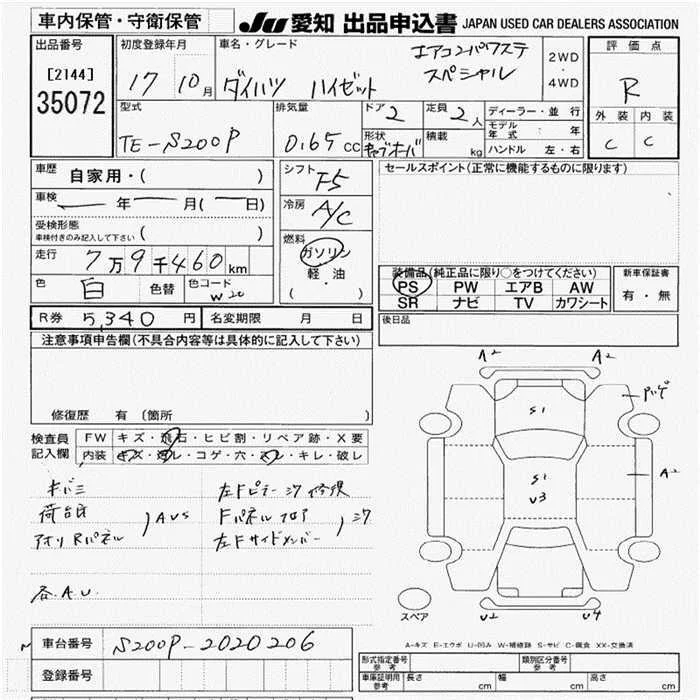 車内保管・守衛保管
JU 愛知 出品申込書 JAPAN USED CAR DEALERS ASSOCIATION
出品番号 [2144] 35072
初度登録年月 17 10月
車名・グレード ダイハツ ハイゼット エアコンパワステ スペシャル
2WD ・ 4WD
評価点 R
外装 内装
C C
型式 TE-S200P
排気量 0.65 CC
ドア 2
定員 2人
形状 キャブオーバ
積載 kg
ディーラー・並行
モデル年式 年
ハンドル 左・右
車歴 自家用・( )
車検 年 月( 日)
受検形態 車検付きのみ記入して下さい ( )
走行 7万9千460km
色 白 色替 色コード W20
シフト F5
冷房 A/C
燃料 ガソリン 軽・油 ( ・ )
セールスポイント(正常に機能するものに限ります)
装備品(純正品に限り○をつけてください)
PS PW エアB AW
SR ナビ TV カワシート
新車保証書 有・無
R券 5,340円 名変期限 月 日
後日品
注意事項申告欄(不具合内容等は具体的に記入して下さい)
修復歴 有 (箇所
検査員記入欄
FW キズ・飛石・ヒビ割・リペア跡・X要
内装 キズ・汚レ・コゲ・穴・スレ・キレ・破レ
キバミ
荷台内
アオリ Rパネル
AUS
各.A.U.
左Fピラーシワ修複
Fパネル フロア
左Fサイドメンバー
シワ
A2 A2
S1
S1
U3
A2
U2 U4
スペア
A-キズ E-エクボ U-凹み W-補修跡 S-サビ C-腐食 XX-交換済
車台番号 S200P-2020206
登録番号
形式指定番号 参考 類別区分番号 参考
車庫証明用 参考 長さ cm 幅 cm 高さ cm